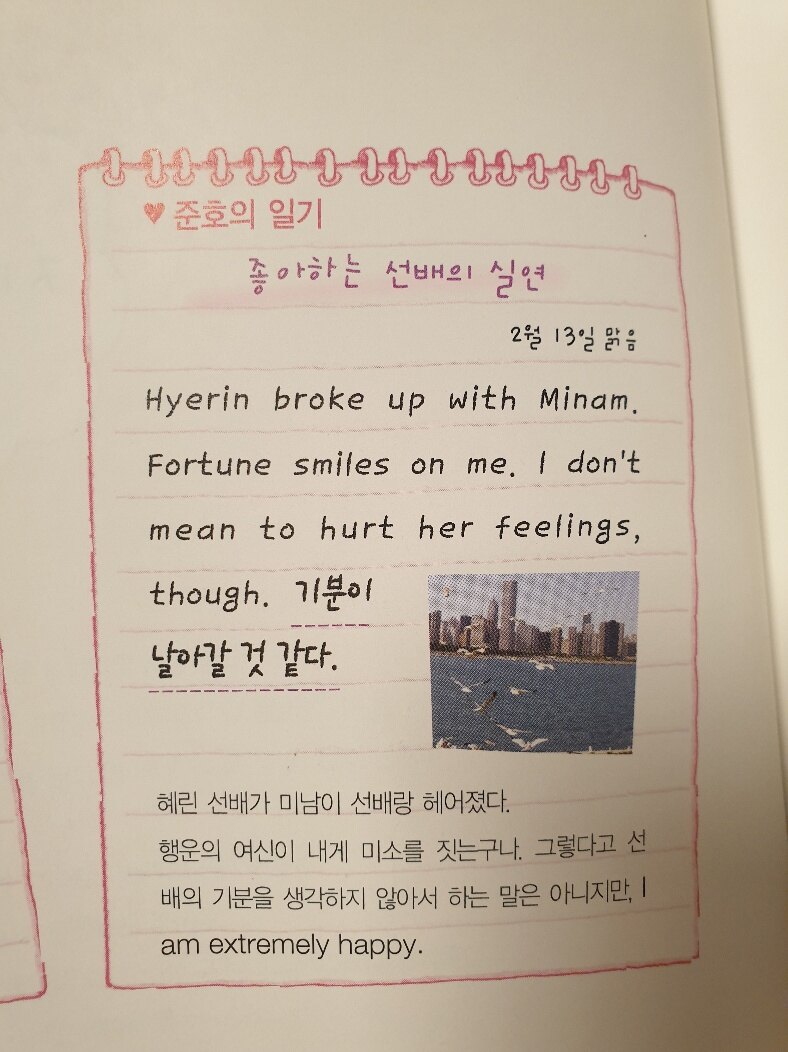 ♥ 준호의 일기
좋아하는 선배의 실연
2월 13일 맑음
Hyerin broke up with Minam.
Fortune smiles on me. I don't
mean to hurt her feelings,
though. 기분이
날아갈 것 같다.
혜린 선배가 미남이 선배랑 헤어졌다.
행운의 여신이 내게 미소를 짓는구나. 그렇다고 선
배의 기분을 생각하지 않아서 하는 말은 아니지만, I
am extremely happy.